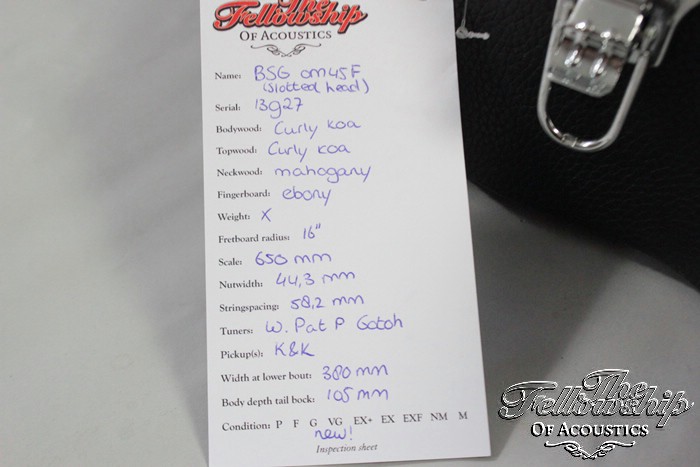 The
Fellowship
OF ACOUSTICS
Name: BSG OM45F
(slotted head)
Serial: 13927
Bodywood: Curly koa
Topwood: Curly koa
Neckwood: mahogany
Fingerboard: ebony
Weight: X
Fretboard radius: 16"
Scale: 650 mm
Nutwidth: 44,3 mm
Stringspacing: 58,2 mm
Tuners: W. Pat P Gotoh
Pickup(s): K&K
Width at lower bout: 380 mm
Body depth tail bock: 105 mm
Condition: P F G VG EX+ EX EXF NM M
new!
Inspection sheet
The
Fellowship
OF ACOUSTICS